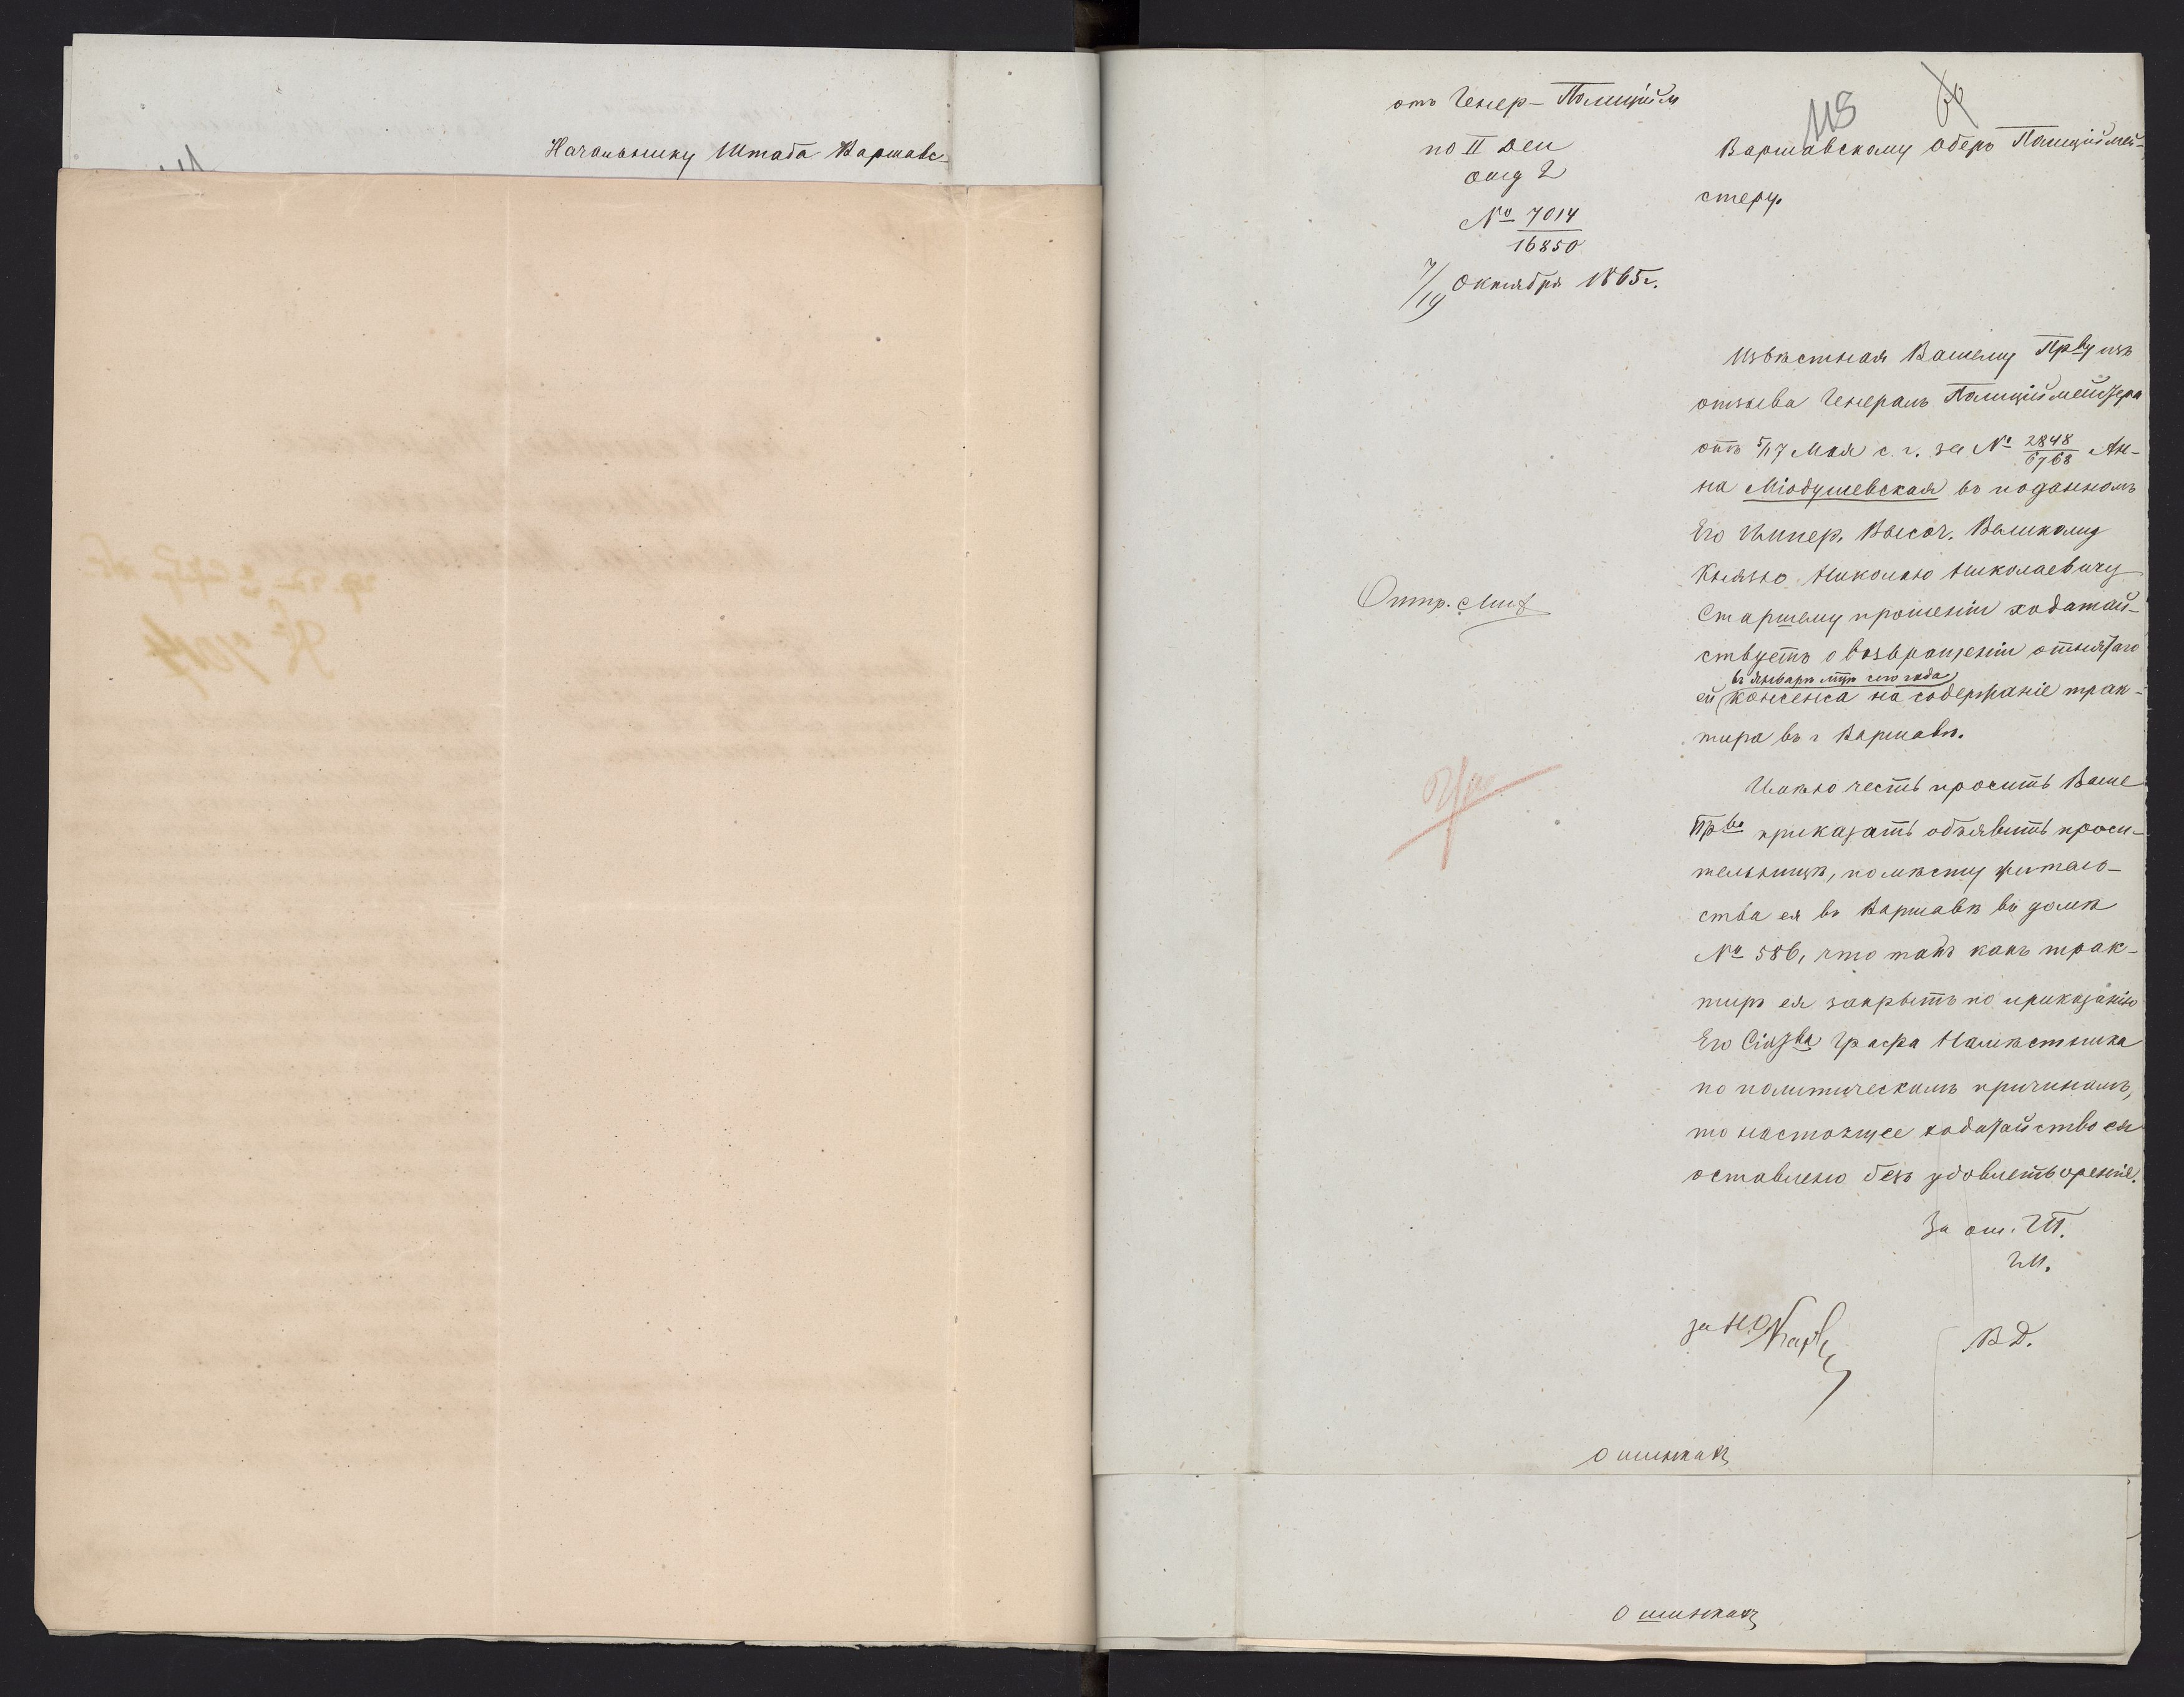 Начальнику Штаба Варшавс-
отъ Генер-Полицiйм
по II Дел
отд 2
№ 7014
16850
7/19 Октября 1865 г.
118
Варшавскому Оберъ Полицiймей-
стеру.
Извѣстная Вашему Прву изъ
отзыва Генералъ Полицiймейстера
отъ 5/17 Мая с. г. за № 2848/6768 Ан-
на Мiодушевская въ поданномъ
Его Импер. Высоч. Великому
Князю Николаю Николаевичу
Старшему прошенiи ходатай-
ствуетъ о возвращенiи отнятаго
въ Январѣ мцѣ сего года
ей консенса на содержанiе трак-
тира въ г Варшавѣ.
Имѣю честь просить Ваше
Прво приказать объявить проси-
тельницѣ, по мѣсту житель-
ства ея въ Варшавѣ въ домѣ
№ 586, что такъ какъ трак-
тиръ ея закрытъ по приказанiю
Его Сiятва Графа Намѣстника
по политическимъ причинамъ,
то настоящее ходатайство ея
оставлено безъ удовлетворенiе.
За от. ГП.
ГМ.
за НО
ВД.
Отпр.
О шинкахъ
О шинкахъ
№ 7014